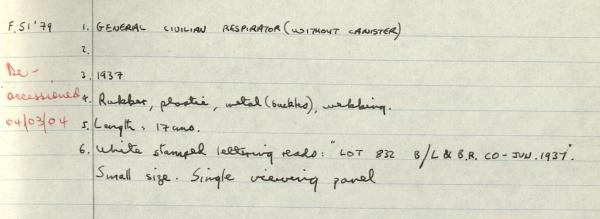 F.51'79 1. GENERAL CIVILIAN RESPIRATOR (WITHOUT CANISTER)
2.
De- 3. 1937
accessioned 4. Rubber, plastic, metal (buckles), webbing.
04/03/04 5. Length: 17 cms.
6. White stamped lettering reads: "LOT 832 B/L & B.R. CO - JUN. 1937".
Small size. Single viewing panel